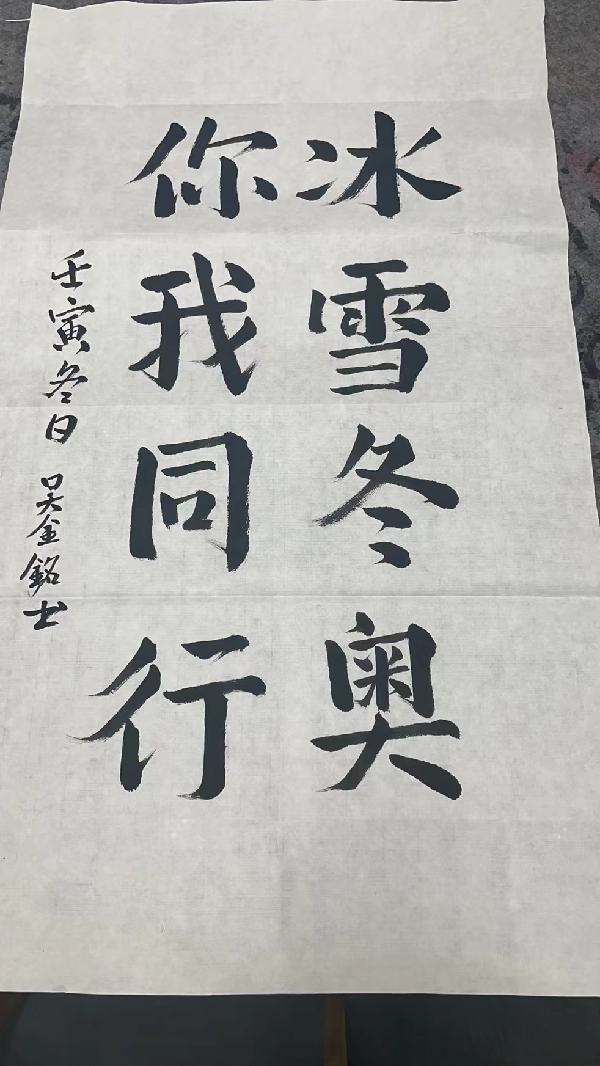 冰雪冬奥
你我同行
壬寅冬日 吴金銘书